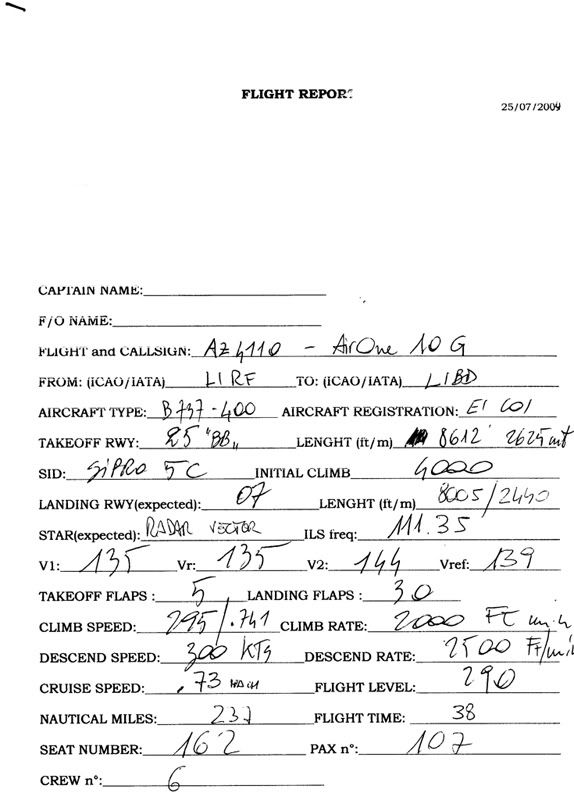 FLIGHT REPORT
25/07/2009
CAPTAIN NAME:
F/O NAME:
FLIGHT and CALLSIGN: AZ 4110 - AirOne 10 G
FROM: (ICAO/IATA) LIRF TO: (ICAO/IATA) LIBD
AIRCRAFT TYPE: B737-400 AIRCRAFT REGISTRATION: EI COI
TAKEOFF RWY: 25 "BB" LENGHT (ft/m) 8612' 2625 mt
SID: SIPRO 5C INITIAL CLIMB 4000
LANDING RWY(expected): 07 LENGHT (ft/m) 8005/2440
STAR(expected): RADAR VECTOR ILS freq: 111.35
V1: 135 Vr: 135 V2: 144 Vref: 139
TAKEOFF FLAPS : 5 LANDING FLAPS : 30
CLIMB SPEED: 295/.741 CLIMB RATE: 2000 FT min
DESCEND SPEED: 300 KTS DESCEND RATE: 2500 Ft/min
CRUISE SPEED: .73 MACH FLIGHT LEVEL: 290
NAUTICAL MILES: 237 FLIGHT TIME: 38
SEAT NUMBER: 162 PAX n°: 107
CREW n°: 6